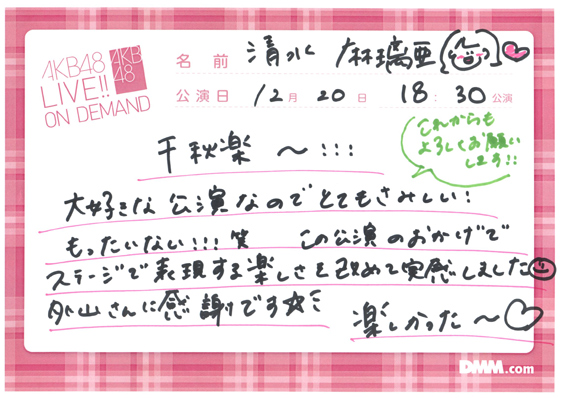 AKB48
LIVE!!
ON DEMAND
AKB
48
名前 清水 麻璃亜
公演日 12月 20日 18:30公演
これからも
よろしくお願い
します!!
千秋楽 〜!!!
大好きな公演なのでとてもさみしい!
もったいない!!!笑 この公演のおかげで
ステージで表現する楽しさを改めて実感しました
外山さんに感謝です☆ミ
楽しかった〜♡
DMM.com